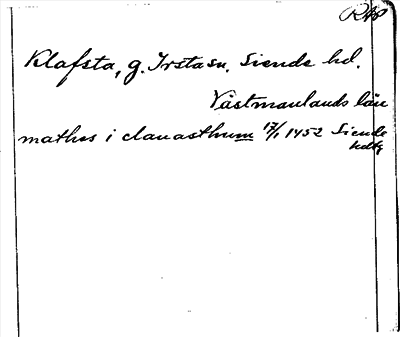 RAP
Klafsta, g. Irsta sn. Siende hd.
Västmanlands län
mathes i clauasthum 17/1 1452 Siende
hdtg